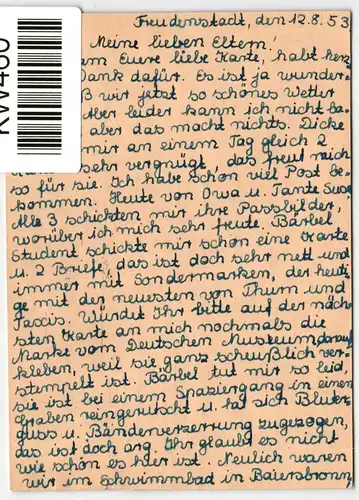 KW460
Freudenstadt, den 12.8.53
Meine lieben Eltern!
Euere liebe Karte, habt herz
Dank dafür. Es ist ja wunder-
wir jetzt so schönes Wetter
Aber leider kann ich nicht ba-
aber das macht nichts. Dicke
mir an einem Tag gleich 2
sehr vergnügt, das freut mich
so für sie. Ich habe schon viel Post be-
kommen. Heute von Owa u. Tante Suse
Alle 3 schickten mir ihre Passbilder,
worüber ich mich sehr freute. Bärbel
Student schickte mir schon eine Karte
u. 2 Briefe, das ist doch sehr nett und
immer mit Sondermarken, der heuti
ge mit der neuesten von Thurn und
Taxis. Würdet Ihr bitte auf der näch
sten Karte an mich nochmals die
Marke vom Deutschen Museum drauf
kleben, weil sie ganz scheußlich ver-
stempelt ist. Bärbel tut mir so leid,
sie ist bei einem Spaziergang in einen
Graben reingerutscht u. hat sich Bluter-
guss u. Bänderverzerrung zugezogen,
das ist doch arg. Ihr glaubt es nicht
wie schön es hier ist. Neulich waren
wir im Schwimmbad in Baiersbronn,